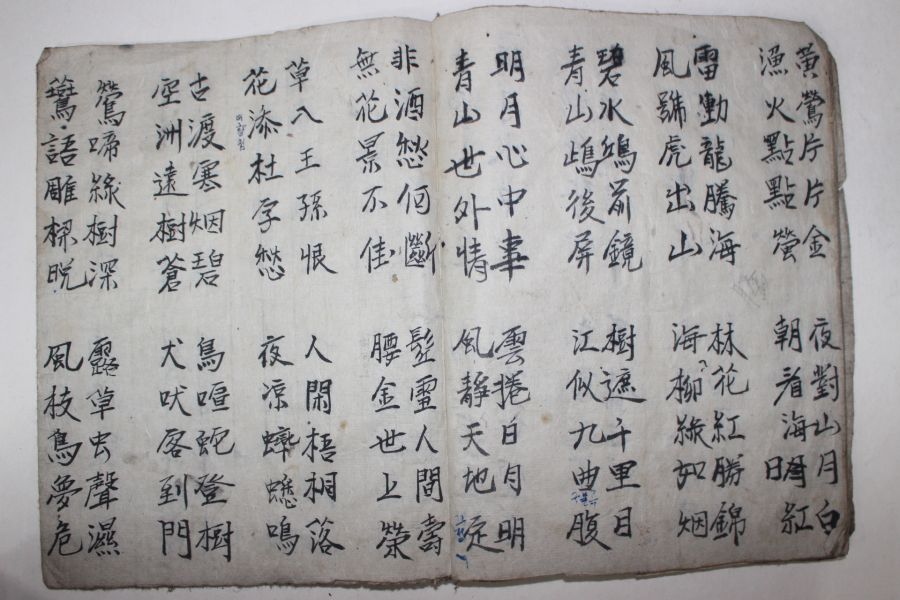 黃鶯片片金
漁火點點螢
雷動龍騰海
風號虎出山
碧水前鏡
青山後屏
明月心中事
青山世外情
夜對山月白
朝看海日紅
林花紅勝錦
海柳綠如烟
樹遮千里目
江似九曲腹
雲捲日月明
風靜天地定
非酒愁何斷
無花景不佳
草入王孫恨
花添杜字愁
古渡寒烟碧
空洲遠樹蒼
鶯啼綠樹深
鷰語雕樑晩
髮雪人間壽
腰金世上榮
人閑梧桐落
夜凉蟀蟋鳴
鳥喧蛇登樹
犬吠客到門
露草虫聲濕
風枝鳥夢危